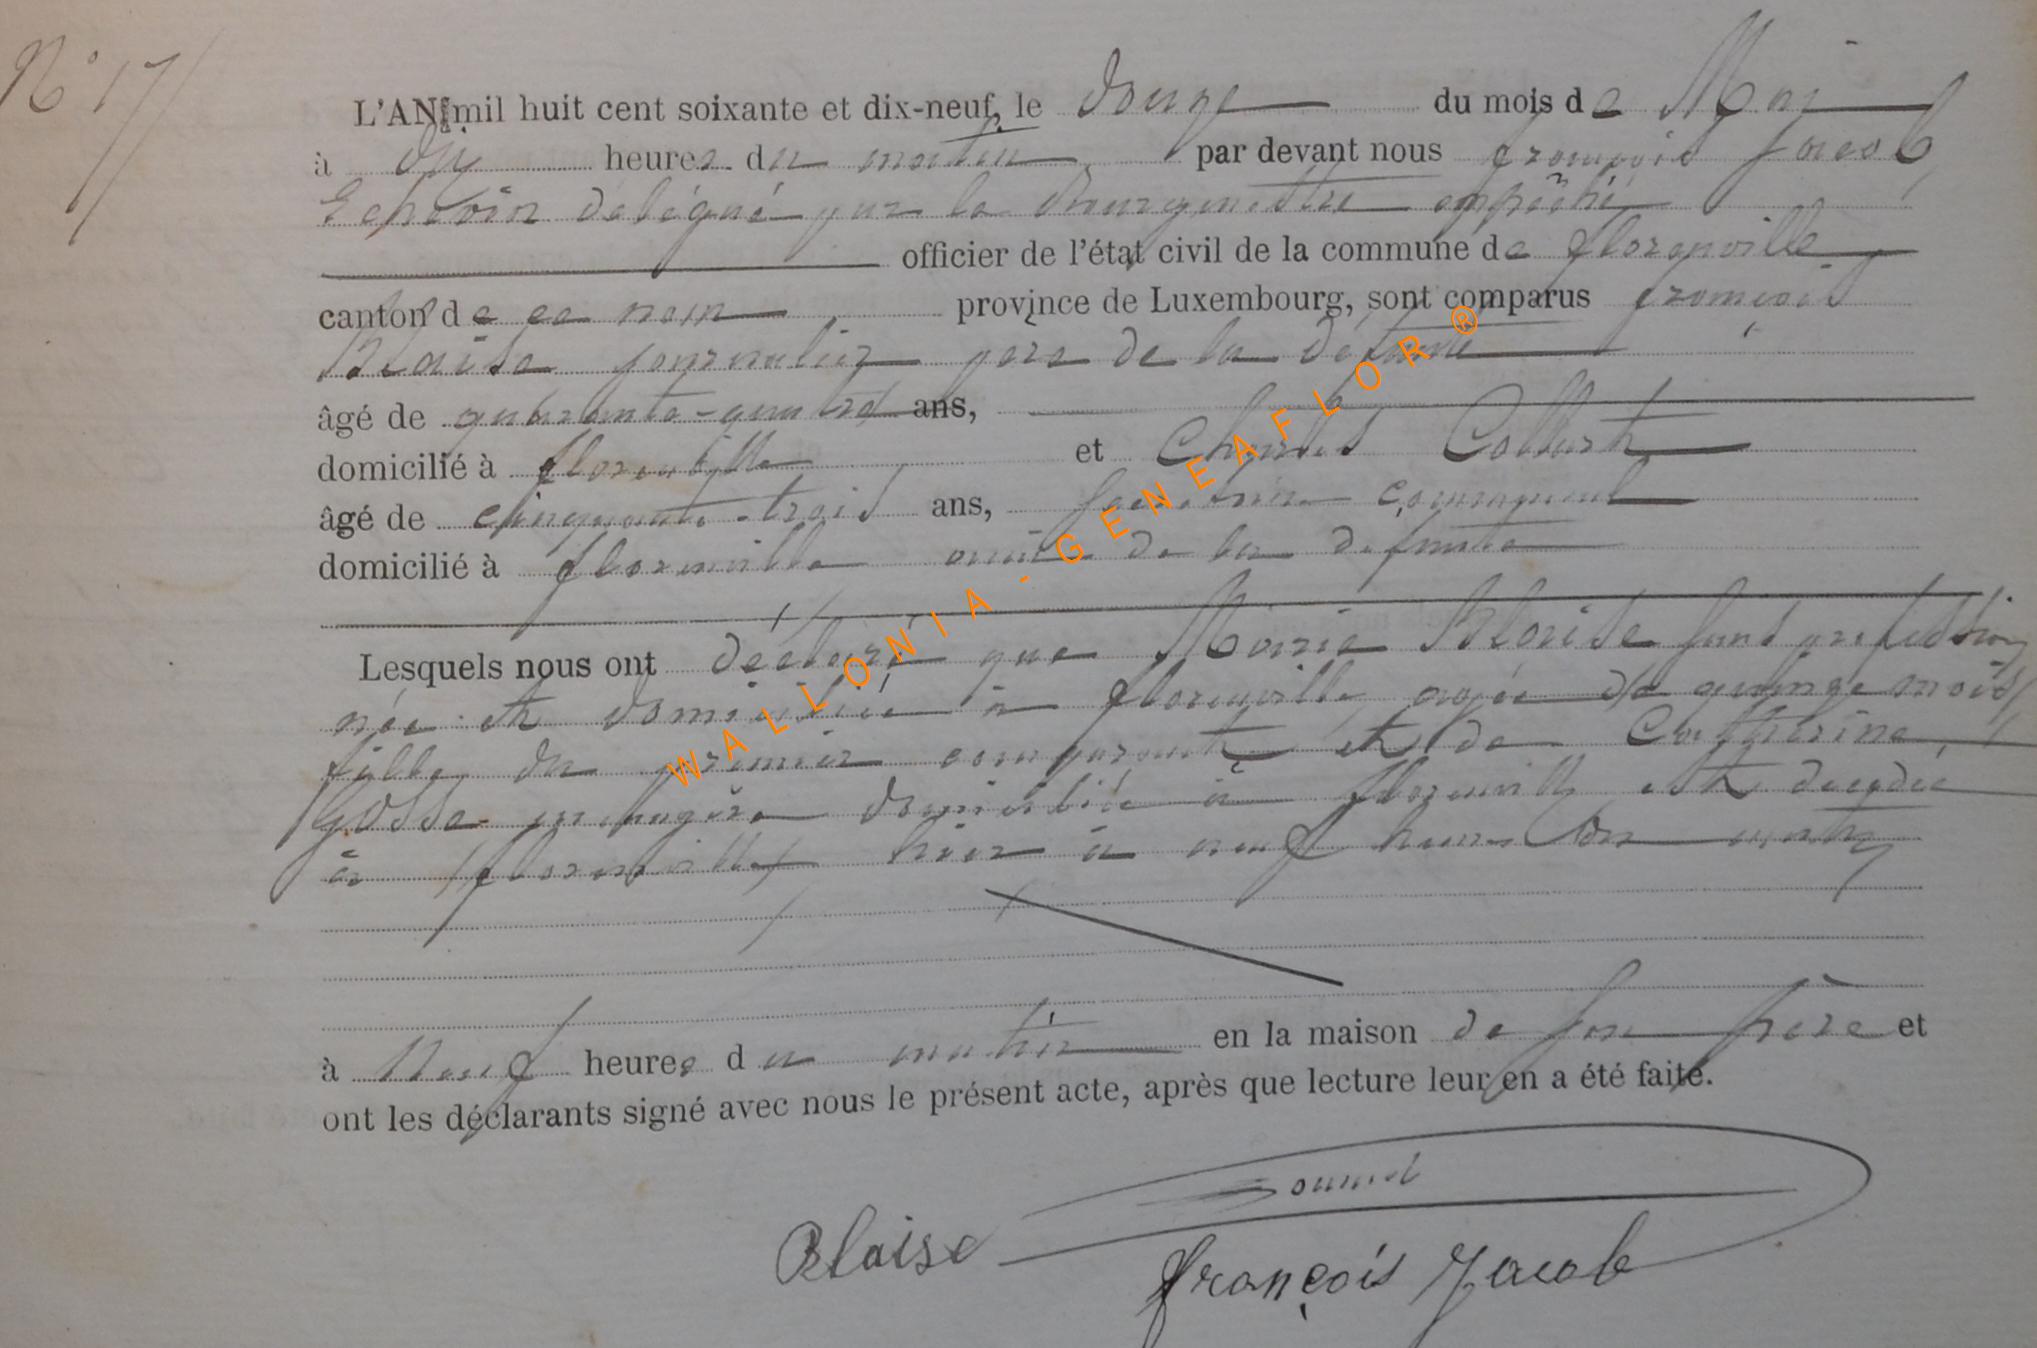 N° 17
L'AN mil huit cent soixante et dix-neuf, le douze du mois de Mai
à dix heures du matin par devant nous françois Jacob
Echevin délégué par le Bourgmestre empêché
officier de l'état civil de la commune de florenville
canton de ce nom province de Luxembourg, sont comparus françois
Blaise journalier père de la défunte
âgé de quarante-quatre ans,
domicilié à florenville et Charles Collart
âgé de cinquante-trois ans, secrétaire communal
domicilié à florenville ami de la defunte
Lesquels nous ont déclaré que Marie Blaise sans profession
née et domiciliée à florenville agée de quinze mois
fille du premier comparant et de Catherine
Gosse ménagère domiciliée à florenville est decedée
à florenville hier à neuf heures du matin
à Neuf heures du matin en la maison de son père et
ont les déclarants signé avec nous le présent acte, après que lecture leur en a été faite.
Blaise
françois Jacob
WALLONIA - GENEAFLOR ®